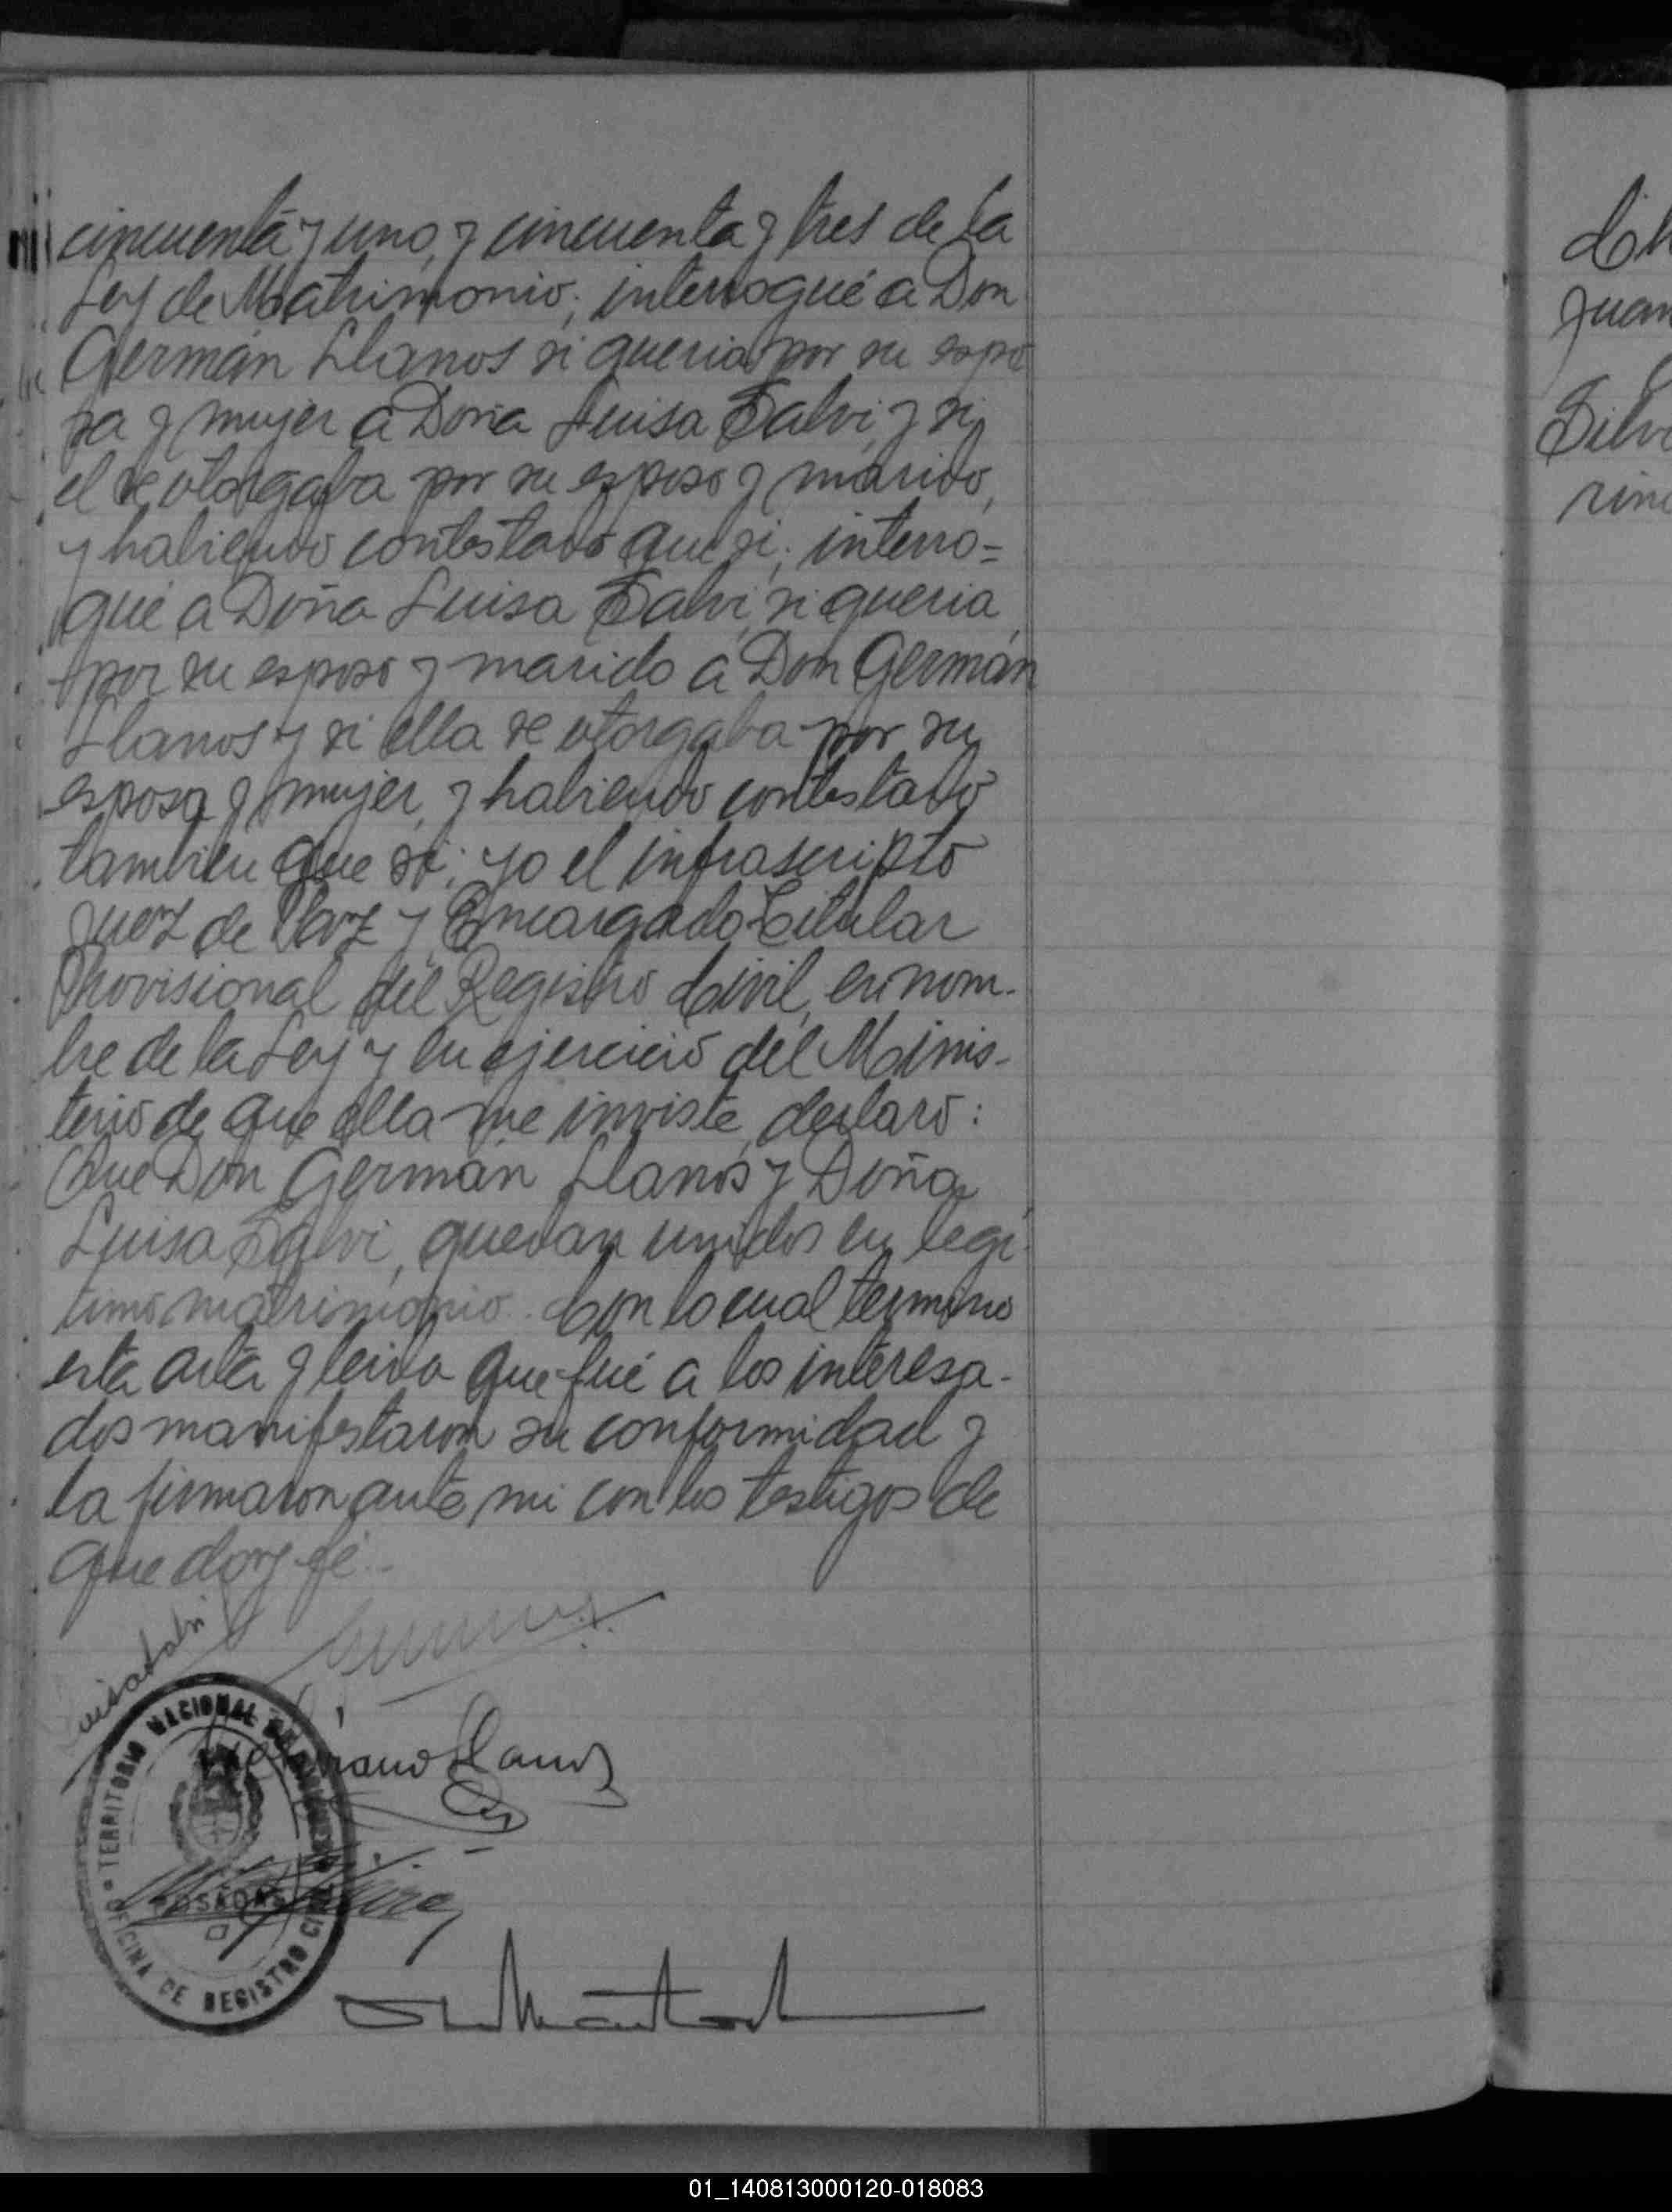 cincuenta y uno, y cincuenta y tres de la
Ley de Matrimonio, interrogué a Don
Germán Llanos si queria por su espo
sa y mujer a Doña Luisa Salvi, y si
el se otorgaba por su esposo y marido,
y habiendo contestado que si; interro=
gué a Doña Luisa Salvi, si queria
por su esposo y marido a Don Germán
Llanos y si ella se otorgaba por su
esposa y mujer, y habiendo contestado
tambien que si; yo el infrascripto
Juez de Paz y Encargado Titular
Provisional del Registro Civil, en nom-
bre de la Ley y en ejercicio del Minis-
terio de que ella me inviste, declaro:
Que Don Germán Llanos y Doña
Luisa Salvi, quedan unidos en legi
timo matrimonio. Con lo cual termino
esta acta y leida que fué a los interesa-
dos manifestaron su conformidad y
la firmaron ante mi con los testigos de
que doy fé.-
Luisa Salvi
Llanos
TERRITORIO NACIONAL DE MISIONES
POSADAS
OFICINA DE REGISTRO CIVIL
Juan
01_140813000120-018083